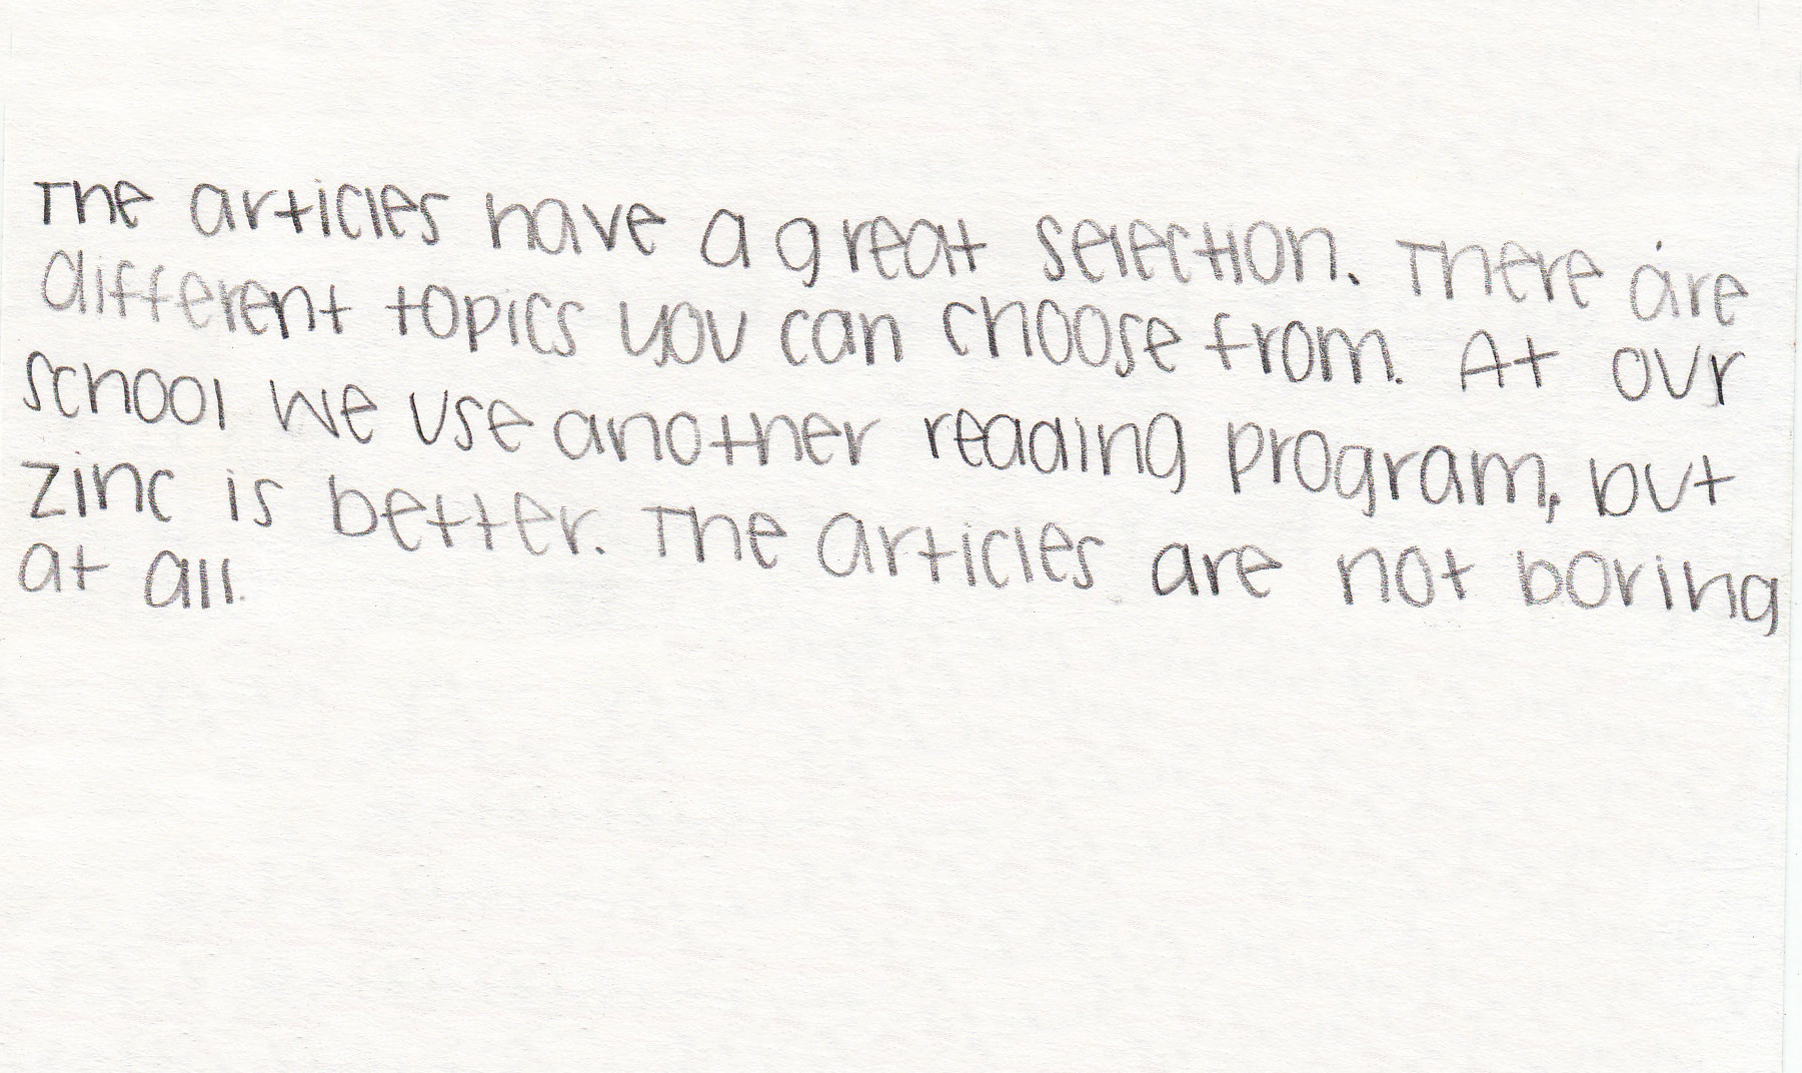 The articles have a great selection. There are
different topics you can choose from. At our
school we use another reading program, but
zinc is better. The articles are not boring
at all.